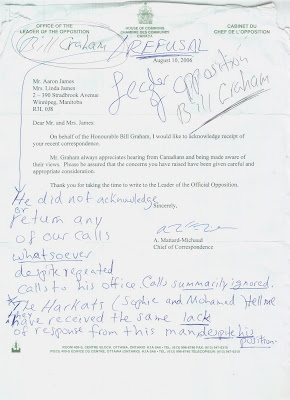 OFFICE OF THE
LEADER OF THE OPPOSITION
HOUSE OF COMMONS
CHAMBRE DES COMMUNES
CANADA
CABINET DU
CHEF DE L'OPPOSITION
Bill Graham / REFUSAL
August 10, 2006
leader of opposition
Bill Graham
Mr. Aaron James
Mrs. Linda James
2 – 390 Stradbrook Avenue
Winnipeg, Manitoba
R3L 0J8
Dear Mr. and Mrs. James:
On behalf of the Honourable Bill Graham, I would like to acknowledge receipt of
your recent correspondence.
Mr. Graham always appreciates hearing from Canadians and being made aware of
their views. Please be assured that the concerns you have raised have been given careful and
appropriate consideration.
Thank you for taking the time to write to the Leader of the Official Opposition.
Sincerely,
A. Mattard-Michaud
Chief of Correspondence
He did not acknowledge
or return any
of our calls
whatsoever
despite repeated
calls to his office. Calls summarily ignored.
* The Harkats (Sophie and Mohamed) tell me
they have received the same lack
of response from this man despite his
position.